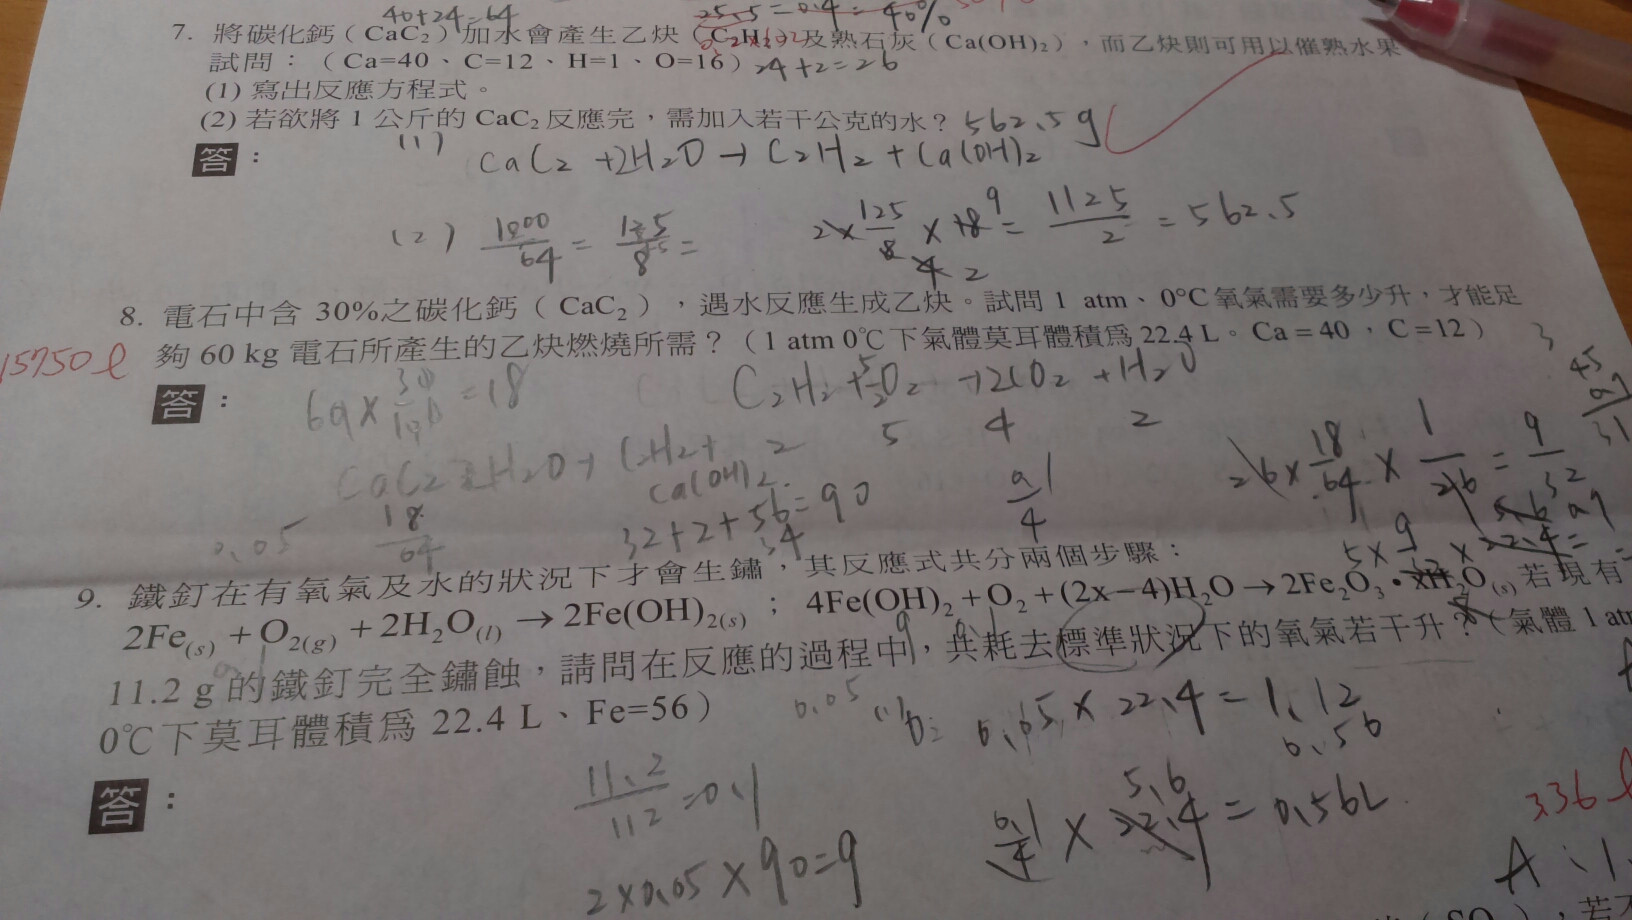 40+24=64
25.5=0.4=40%
7. 將碳化鈣（CaC₂）加水會產生乙炔（C₂H₂）及熟石灰（Ca(OH)₂），而乙炔則可用以催熟水果
試問：（Ca=40、C=12、H=1、O=16） 24+2=26
(1) 寫出反應方程式。
(2) 若欲將 1 公斤的 CaC₂ 反應完，需加入若干公克的水？ 562.5g
答：
(1) CaC₂ +2H₂O → C₂H₂ + Ca(OH)₂
(2) 1000/64 = 125/8 = 2× 125/8 × 18 9 = 1125/2 = 562.5
4 2
8. 電石中含 30%之碳化鈣（CaC₂），遇水反應生成乙炔。試問 1 atm、0℃氧氣需要多少升，才能足
15750 l 夠 60 kg 電石所產生的乙炔燃燒所需？（1 atm 0℃下氣體莫耳體積為 22.4 L。Ca = 40，C = 12）
答：
60× 30/100 =18 C₂H₂ + 5/2 O₂ → 2CO₂ + H₂O
2 5 4 2
CaC₂ 2H₂O → C₂H₂+ Ca(OH)₂
18/64
26× 18/64 × 1/26 = 9/32
32+2+56=90
34
0.05
5× 9/32 ×
9. 鐵釘在有氧氣及水的狀況下才會生鏽，其反應式共分兩個步驟：
2Fe(s) + O₂(g) + 2H₂O(l) → 2Fe(OH)₂(s)；4Fe(OH)₂ + O₂ + (2x−4)H₂O → 2Fe₂O₃•xH₂O(s) 若現有
11.2 g 的鐵釘完全鏽蝕，請問在反應的過程中，共耗去標準狀況下的氧氣若干升？（氣體 1 atm
0℃下莫耳體積為 22.4 L、Fe=56）
0.05
0.05× 22.4 = 1.12
0.56
答：
11.2/112 =0.1
0.1/4 × 22.4 5.6 = 0.56L
2×0.05×90=9
3.36 l